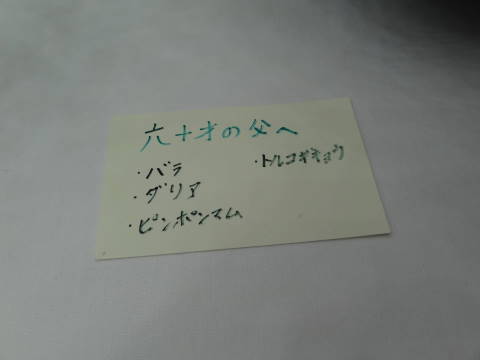 六十才の父へ
・バラ
・ダリア
・ピンポンマム
・トルコギキョウ